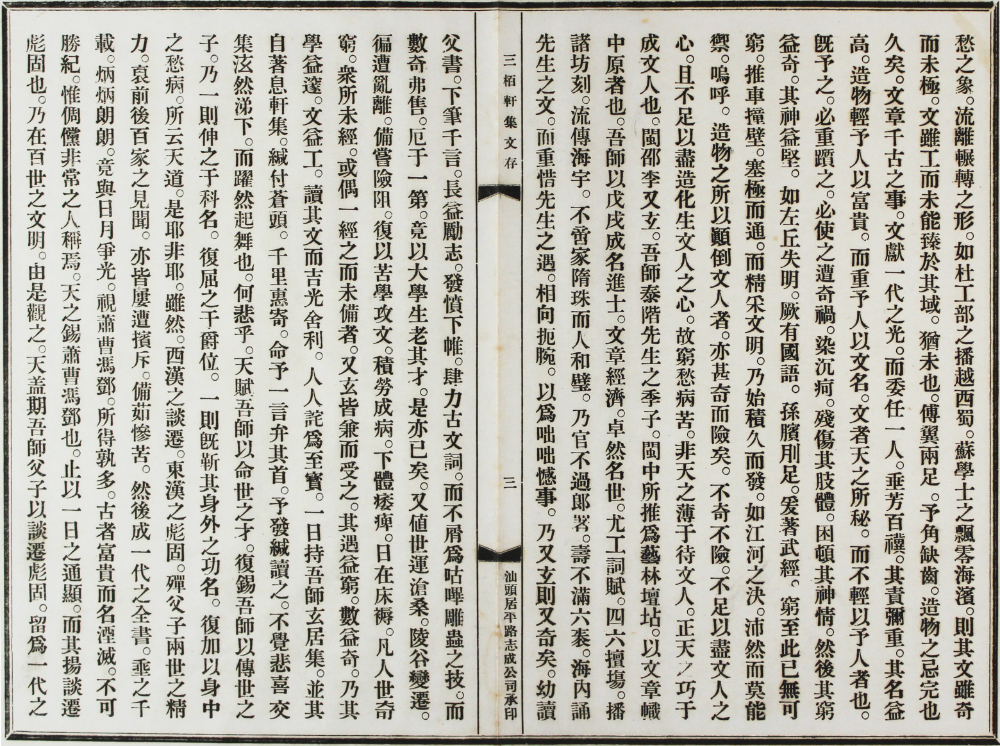 愁之象。流離輾轉之形。如杜工部之播越西蜀。蘇學士之飄零海濱。則其文雖奇
而未極。文雖工而未能臻於其域。猶未也。傅翼兩足。予角缺齒。造物之忌完也
久矣。文章千古之事。文獻一代之光。而委任一人。垂芳百禩。其責彌重。其名益
高。造物輕予人以富貴。而重予人以文名。文者天之所秘。而不輕以予人者也。
旣予之。必重躓之。必使之遭奇禍。染沉疴。殘傷其肢體。困頓其神情。然後其窮
益奇。其神益堅。如左丘失明。厥有國語。孫臏刖足。爰著武經。窮至此已無可
窮。推車撞壁。塞極而通。而精采文明。乃始積久而發。如江河之決。沛然而莫能
禦。嗚呼。造物之所以顚倒文人者。亦甚奇而險矣。不奇不險。不足以盡文人之
心。且不足以盡造化生文人之心。故窮愁病苦。非天之薄于待文人。正天之巧于
成文人也。閩邵李又玄。吾師泰階先生之季子。閩中所推爲藝林壇坫。以文章幟
中原者也。吾師以戊戌成名進士。文章經濟。卓然名世。尤工詞賦。四六擅塲。播
諸坊刻。流傳海宇。不啻家隋珠而人和璧。乃官不過郎署。壽不滿六袠。海內誦
先生之文。而重惜先生之遇。相向扼腕。以爲咄咄憾事。乃又玄則又奇矣。幼讀
三栢軒集文存
三
汕頭居平路志成公司承印
父書。下筆千言。長益勵志。發憤下帷。肆力古文詞。而不屑爲呫嗶雕蟲之技。而
數奇弗售。厄于一第。竟以大學生老其才。是亦已矣。又値世運滄桑。陵谷變遷。
徧遭亂離。備嘗險阻。復以苦學攻文。積勞成病。下體痿痺。日在床褥。凡人世奇
窮。衆所未經。或偶一經之而未備者。又玄皆兼而受之。其遇益窮。數益奇。乃其
學益邃。文益工。讀其文而吉光舍利。人人詫爲至寳。一日持吾師玄居集。並其
自著息軒集。緘付蒼頭。千里惠寄。命予一言弁其首。予發緘讀之。不覺悲喜交
集泫然涕下。而躍然起舞也。何悲乎。天賦吾師以命世之才。復錫吾師以傳世之
子。乃一則伸之于科名。復屈之于爵位。一則旣靳其身外之功名。復加以身中
之愁病。所云天道。是耶非耶。雖然。西漢之談遷。東漢之彪固。殫父子兩世之精
力。裒前後百家之見聞。亦皆屢遭擯斥。備茹慘苦。然後成一代之全書。垂之千
載。炳炳朗朗。竟與日月爭光。視蕭曹馮鄧。所得孰多。古者富貴而名湮滅。不可
勝紀。惟倜儻非常之人稱焉。天之錫蕭曹馮鄧也。止以一日之通顯。而其揚談遷
彪固也。乃在百世之文明。由是觀之。天盖期吾師父子以談遷彪固。留爲一代之